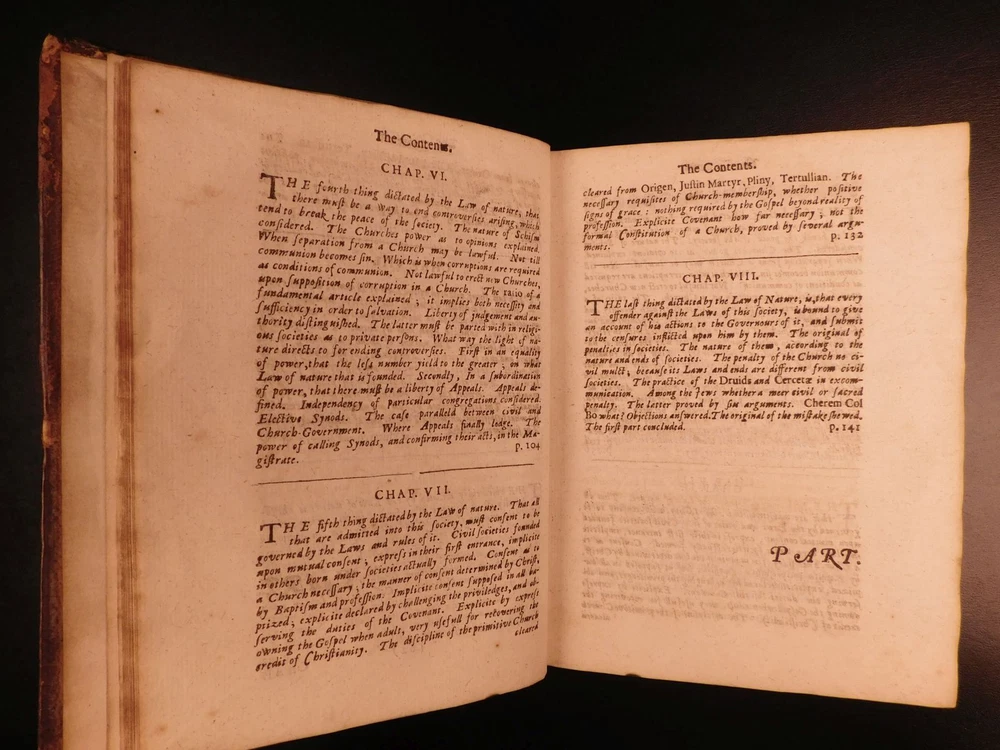 The Contents.
CHAP. VI.
THE fourth thing dictated by the Law of nature, that
there must be a way to end controversies arising, which
tend to break the peace of the society. The nature of Schism
considered. The Churches power as to opinions explained.
When separation from a Church may be lawful. Not till
communion becomes sin. Which is when corruptions are required
as conditions of communion. Not lawful to erect new Churches,
upon supposition of corruption in a Church. The ratio of a
fundamental article explained; it implies both necessity and
sufficiency in order to salvation. Liberty of judgement and au-
thority distinguished. The latter must be parted with in religi-
ous societies as to private persons. What way the light of na-
ture directs to for ending controversies. First in an equality
of power, that the less number yield to the greater; on what
Law of nature that is founded. Secondly, In a subordination
of power, that there must be a liberty of Appeals. Appeals de-
fined. Independency of particular congregations considered.
Elective Synods. The case paralleld between civil and
Church-Government. Where Appeals finally lodge. The
power of calling Synods, and confirming their acts, in the Ma-
gistrate. p. 104
CHAP. VII.
THE fifth thing dictated by the Law of nature. That all
that are admitted into this society, must consent to be
governed by the Laws and rules of it. Civil societies founded
upon mutual consent; express in their first entrance, implicite
in others born under societies actually formed. Consent as to
a Church necessary; the manner of consent determined by Christ,
by Baptism and profession. Implicite consent supposed in all ba-
ptized; explicite declared by challenging the priviledges, and ob-
serving the duties of the Covenant. Explicite by express
owning the Gospel when adult, very usefull for recovering the
credit of Christianity. The discipline of the primitive Church
cleared
The Contents.
cleared from Origen, Justin Martyr, Pliny, Tertullian. The
necessary requisites of Church-membership, whether positive
signs of grace: nothing required by the Gospel beyond reality of
profession. Explicite Covenant how far necessary; not the
formal Constitution of a Church, proved by several argu-
ments. p. 132
CHAP. VIII.
THE last thing dictated by the Law of Nature, is, that every
offender against the Laws of this society, is bound to give
an account of his actions to the Governours of it, and submit
to the censures inflicted upon him by them. The original of
penalties in societies. The nature of them, according to the
nature and ends of societies. The penalty of the Church no ci-
vil mulct, because its Laws and ends are different from civil
societies. The practice of the Druids and Cercetæ in excom-
munication. Among the Jews whether a meer civil or sacred
penalty. The latter proved by six arguments. Cherem Col
Bo what? Objections answered. The original of the mistake shewed.
The first part concluded. p. 141
PART.